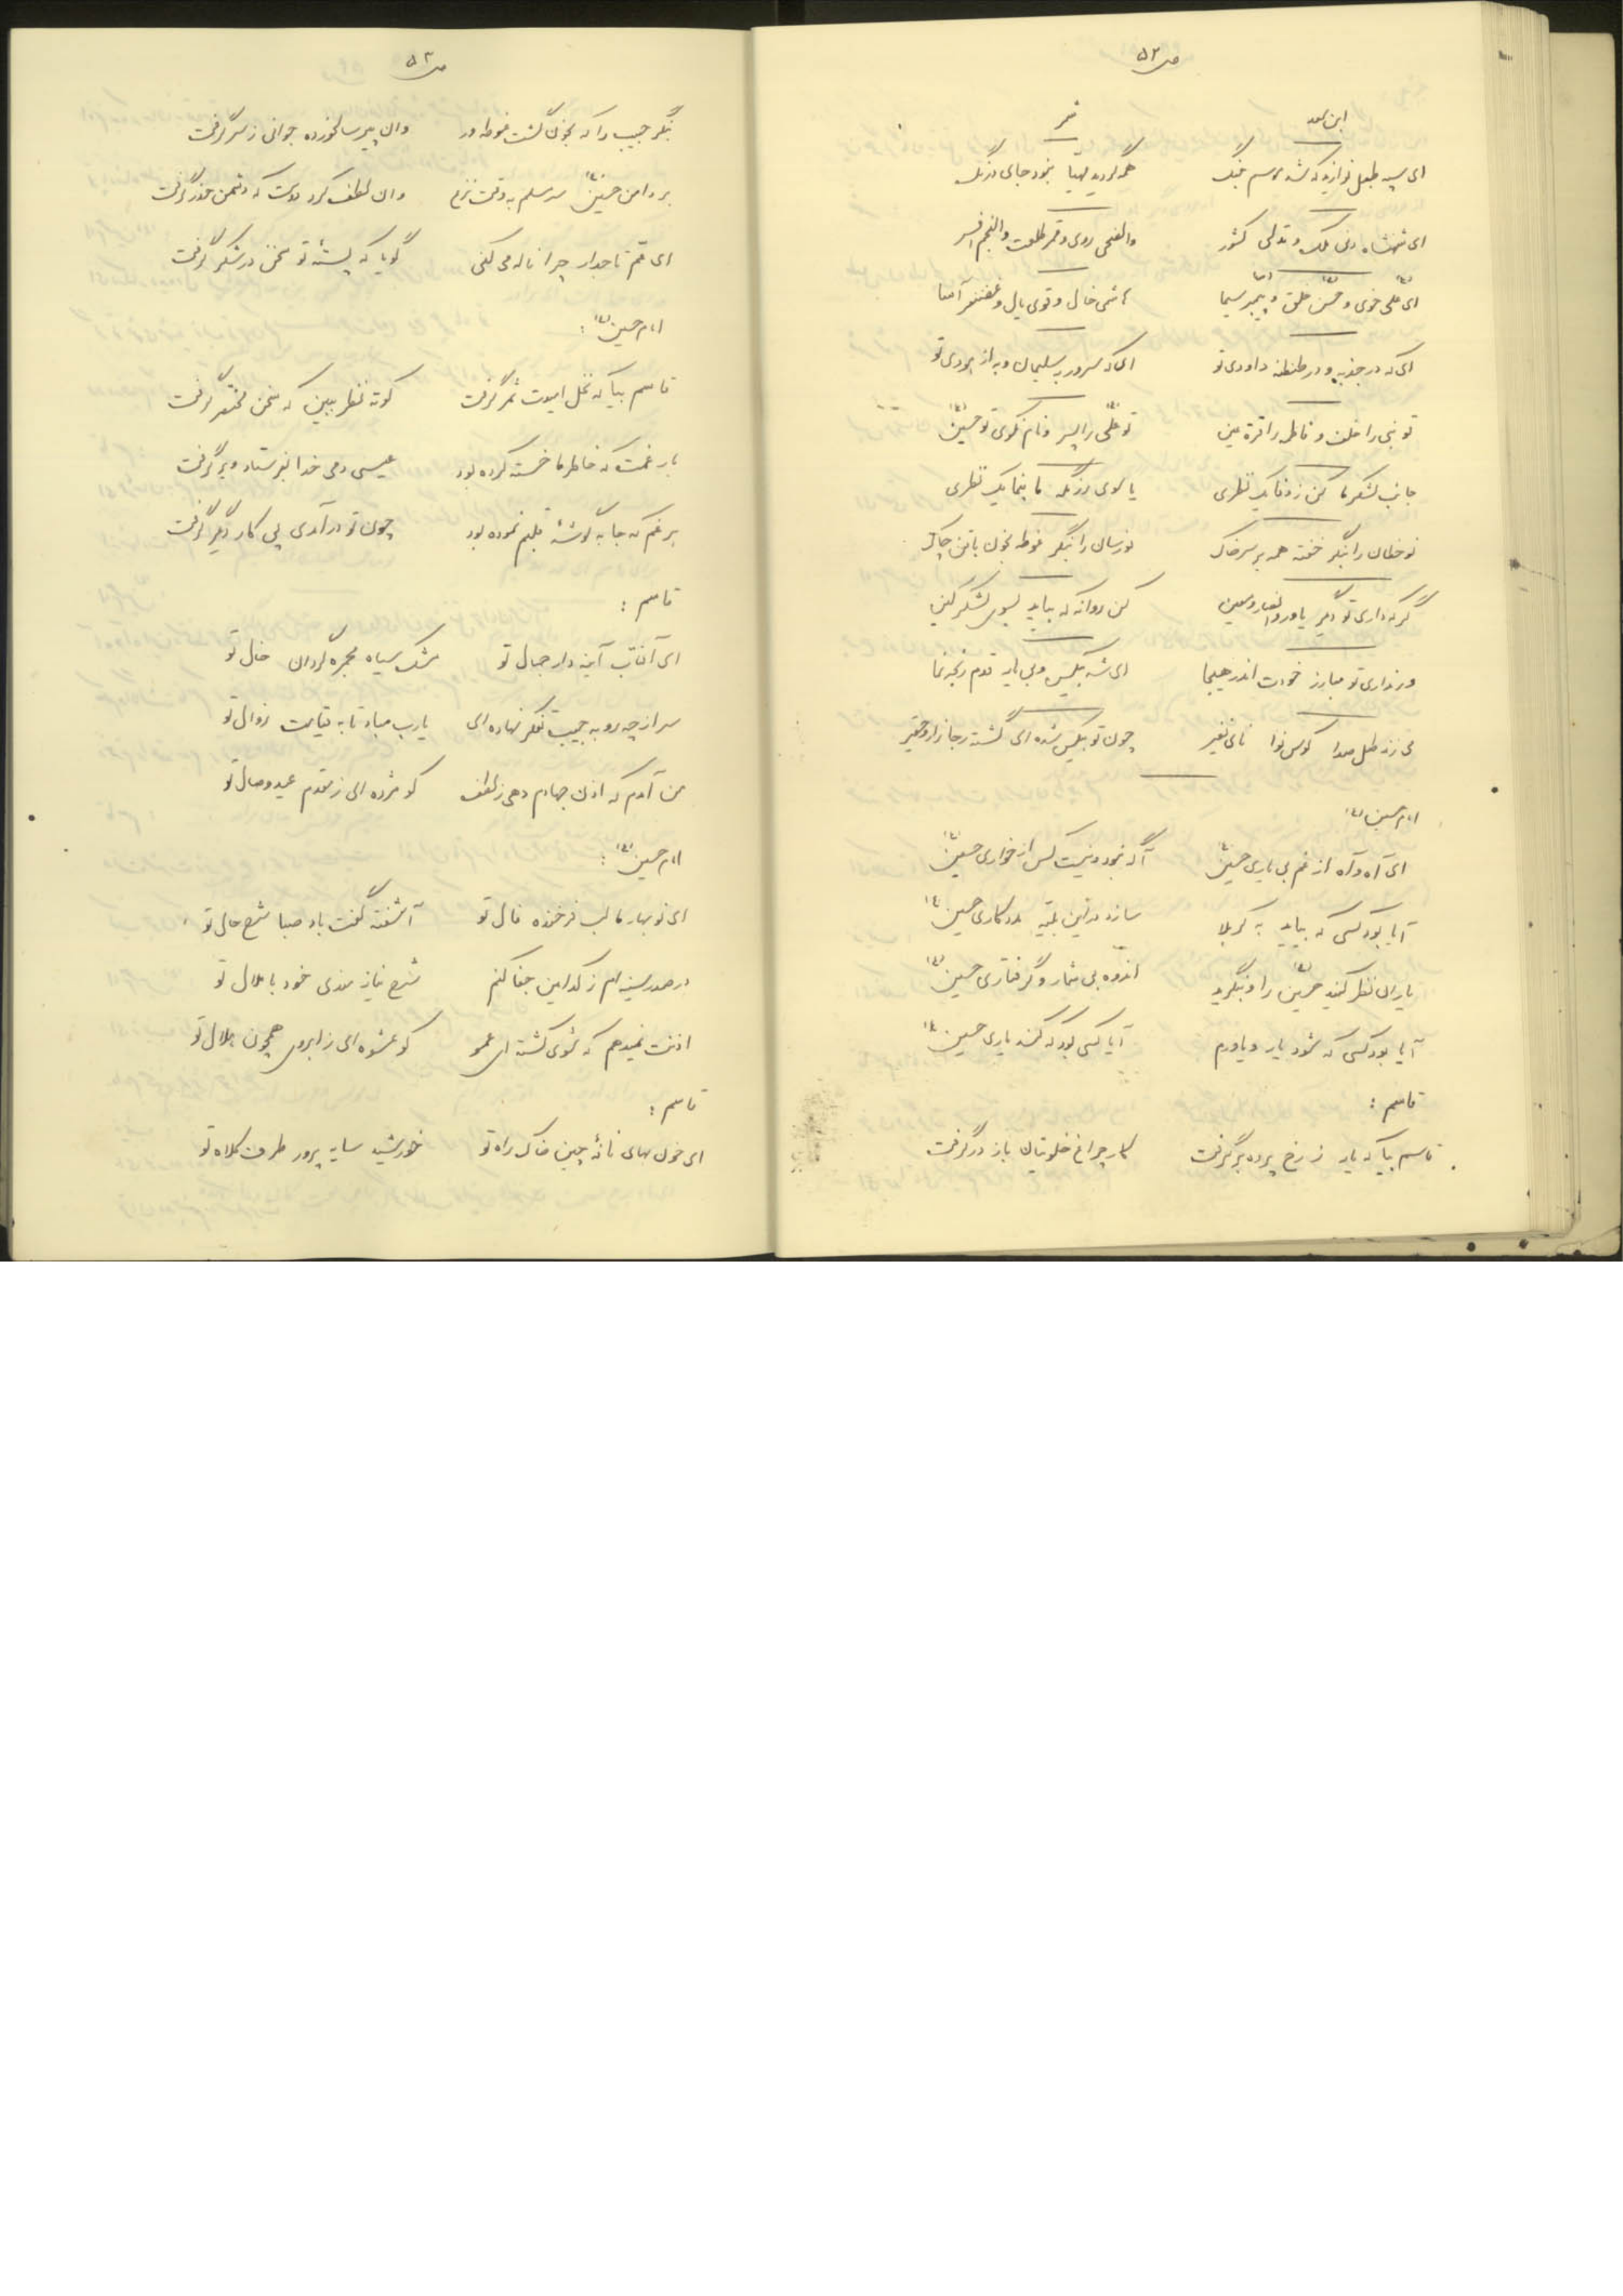 ص ۵۲
ابن سعد شمر
ای سپه طبل نوازید که شد موسم جنگ همه گردید مهیا نبود جای درنگ
ای شهنشاه دنی ملک و تدلی کشور والضحی روی و قمر طلعت والنجم افسر
ای علی خوی و حسن خلق و پیمبر سیما هاشمی خال و قوی یال و غضنفر آسا
ای که در جذبه و در طنطنه داودی تو ای که سرور به سلیمان و به از هودی تو
تو نبی را خلف و فاطمه را قرة عین تو علی را پسر و نام نکوی تو حسین
جانب لشکر ما کن ز وفا یک نظری یا سوی رزمگه ما بنما یک نظری
نوخطان را بنگر خفته همه بر سر خاک نورسان را بنگر غوطه بخون با تن چاک
گر که داری تو دگر یاور و انصار و معین کن روانه که بیاید بسوی لشکر کین
ور نداری تو مبارز خودت اندر هیجا ای شه بیکس و بی یار قدم رنجه نما
می زند طبل صدا کوس نوا نای نفیر چون تو بیکس شده ای گشته ز جا زار و حقیر
امام حسین ع
ای آه و آه از غم بی یاری حسین آگه نبود و نیست کس از خواری حسین
آیا بود کسی که بیاید به کربلا سازد در این بلیه مددکاری حسین ع
یاران نظر کنید حسین را و بنگرید اندوه بی شمار و گرفتاری حسین ع
آیا بود کسی که شود یار و یاورم آیا کسی بود که کند یاری حسین ع
قاسم :
قاسم بیا که یار ز رخ پرده برگرفت کار چراغ خلوتیان باز درگرفت
ص ۵۳
بنگر حبیب را که بخون گشت غوطه ور وان پیر سالخورده جوانی ز سر گرفت
بر دامن حسین سر مسلم به وقت نزع وان لطف کرد دوست که دشمن حذر گرفت
ای عم تاجدار چرا ناله می کنی گویا که پسته تو سخن در شکر گرفت
امام حسین ع :
قاسم بیا که نخل امیدت ثمر گرفت کوته نظر ببین که سخن مختصر گرفت
بار غمت که خاطر ما خسته کرده بود عیسی دمی خدا بفرستاد و برگرفت
هر غم که جا به گوشه قلبم نموده بود چون تو درآمدی پی کار دگر گرفت
قاسم :
ای آفتاب آینه دار جمال تو مشک سیاه مجمره گردان خال تو
سر از چه رو به جیب تفکر نهاده ای یارب مباد تا به قیامت زوال تو
من آمدم که اذن جهادم دهی ز لطف کو مژده ای ز مقدم عید وصال تو
امام حسین ع :
ای نوبهار ما لب فرخنده فال تو آشفته گفت باد صبا شرح حال تو
در صدر سینه ام ز کدامین جفا کنم شرح نیازمندی خود با ملال تو
اذنت نمیدهم که شوی کشته ای عمو کو عشوه ای ز ابروی همچون هلال تو
قاسم :
ای خون بهای نافه چین خاک راه تو خورشید سایه پرور طرف کلاه تو